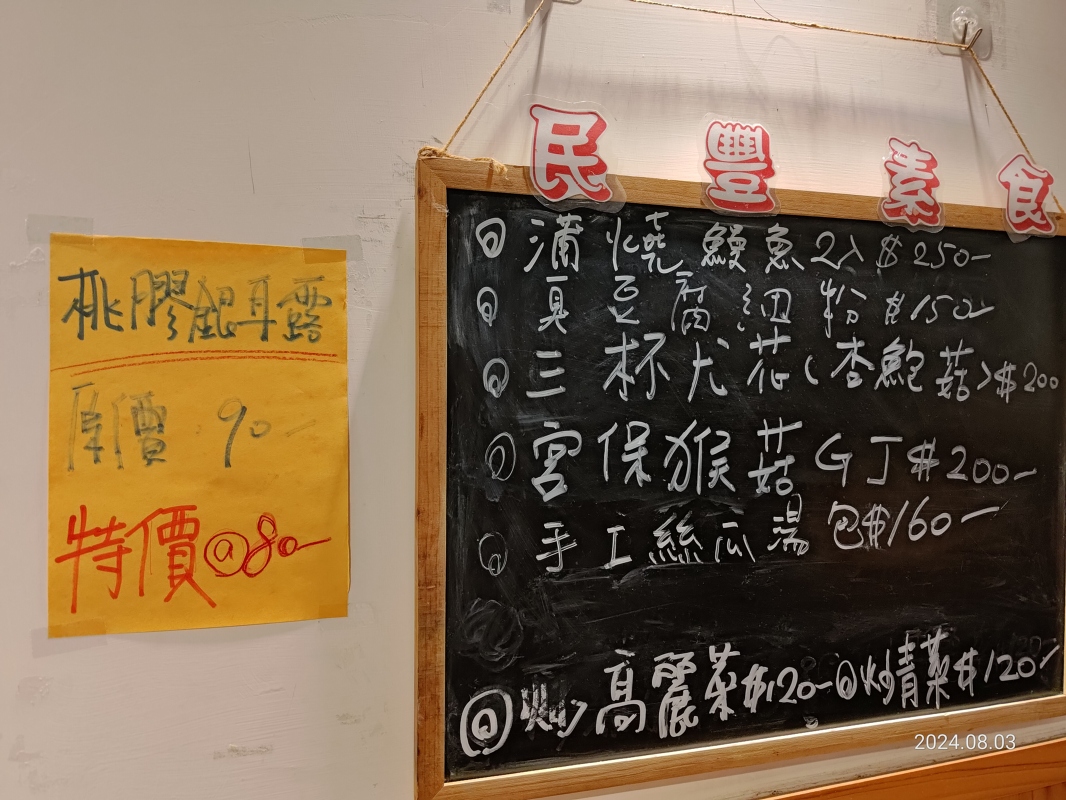 桃膠銀耳露
原價 90-
特價@80-
民豐素食
@蒲燒鰻魚2入$250-
@臭豆腐細粉$150-
@三杯尤花(杏鮑菇)$200
@宮保猴菇GJ$200-
@手工絲瓜湯包$160-
@炒高麗菜$120-@炒青菜$120-
2024.08.03